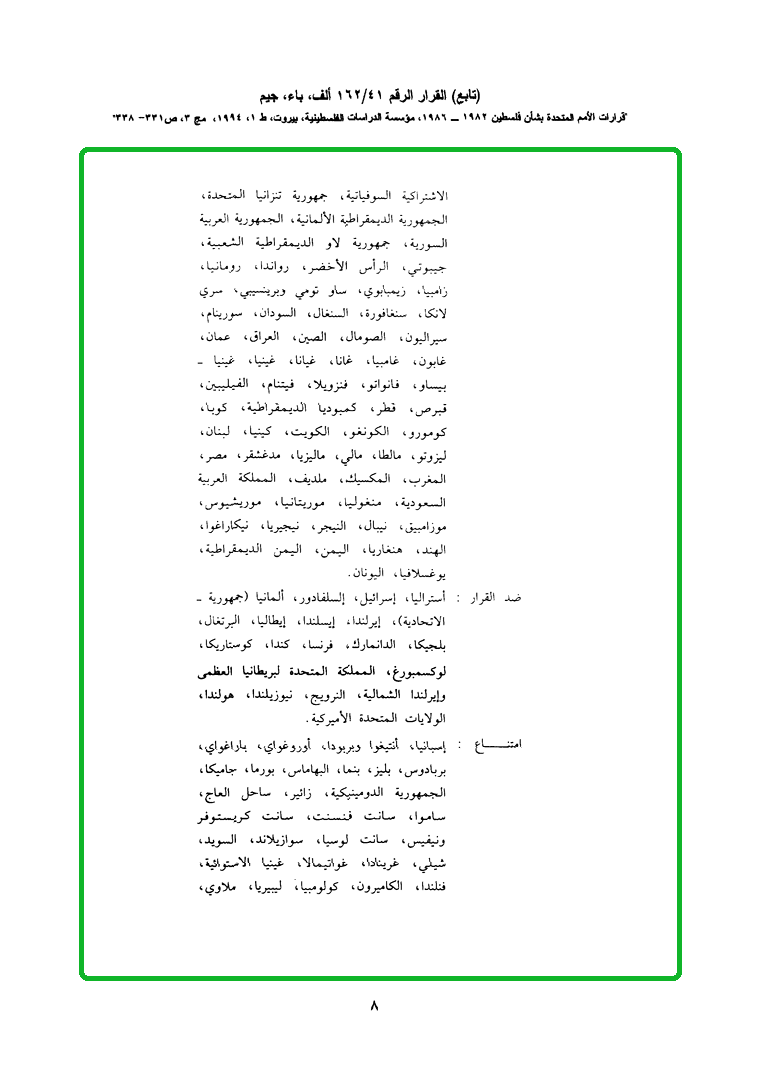 (تابع) القرار الرقم ١٦٢/٤١ ألف، باء، جيم
"قرارات الأمم المتحدة بشأن فلسطين ١٩٨٢ ــ ١٩٨٦، مؤسسة الدراسات الفلسطينية، بيروت، ط ١، ١٩٩٤، مج ٣، ص٣٣١- ٣٣٨"
الاشتراكية السوفياتية، جمهورية تنزانيا المتحدة،
الجمهورية الديمقراطية الألمانية، الجمهورية العربية
السورية، جمهورية لاو الديمقراطية الشعبية،
جيبوتي، الرأس الأخضر، رواندا، رومانيا،
زامبيا، زيمبابوي، ساو تومي وبرينسيبي، سري
لانكا، سنغافورة، السنغال، السودان، سورينام،
سيراليون، الصومال، الصين، العراق، عمان،
غابون، غامبيا، غانا، غيانا، غينيا، غينيا ـ
بيساو، فانواتو، فنزويلا، فيتنام، الفيليبين،
قبرص، قطر، كمبوديا الديمقراطية، كوبا،
كومورو، الكونغو، الكويت، كينيا، لبنان،
ليزوتو، مالطا، مالي، ماليزيا، مدغشقر، مصر،
المغرب، المكسيك، ملديف، المملكة العربية
السعودية، منغوليا، موريتانيا، موريشيوس،
موزامبيق، نيبال، النيجر، نيجيريا، نيكاراغوا،
الهند، هنغاريا، اليمن، اليمن الديمقراطية،
يوغسلافيا، اليونان.
ضد القرار : أستراليا، إسرائيل، إلسلفادور، ألمانيا (جمهورية ـ
الاتحادية)، إيرلندا، إيسلندا، إيطاليا، البرتغال،
بلجيكا، الدانمارك، فرنسا، كندا، كوستاريكا،
لوكسمبورغ، المملكة المتحدة لبريطانيا العظمى
وإيرلندا الشمالية، النرويج، نيوزيلندا، هولندا،
الولايات المتحدة الأميركية.
امتنـــــاع : إسبانيا، أنتيغوا وبربودا، أوروغواي، باراغواي،
بربادوس، بليز، بنما، البهاماس، بورما، جاميكا،
الجمهورية الدومينيكية، زائير، ساحل العاج،
ساموا، سانت فنسنت، سانت كريستوفر
ونيفيس، سانت لوسيا، سوازيلاند، السويد،
شيلي، غرينادا، غواتيمالا، غينيا الاستوائية،
فنلندا، الكاميرون، كولومبيا، ليبيريا، ملاوي،
٨